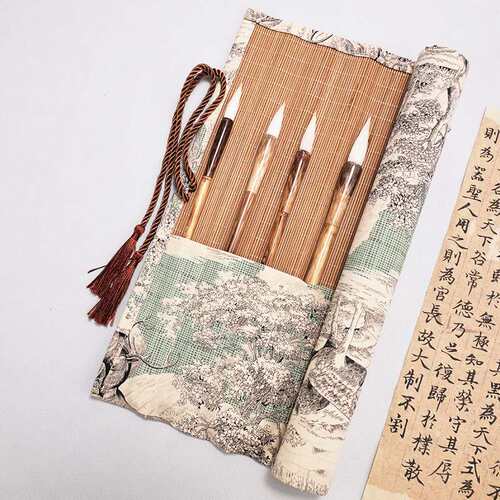 其黑為天下式為
於無極知其榮守其辱
為天下谷常德乃足復歸於樸散
則為器聖人用之則為官長故大制不割